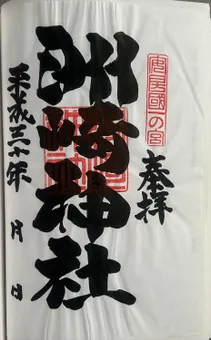 安房國一の宮
奉拝
洲崎神社
平成三十年　月　日